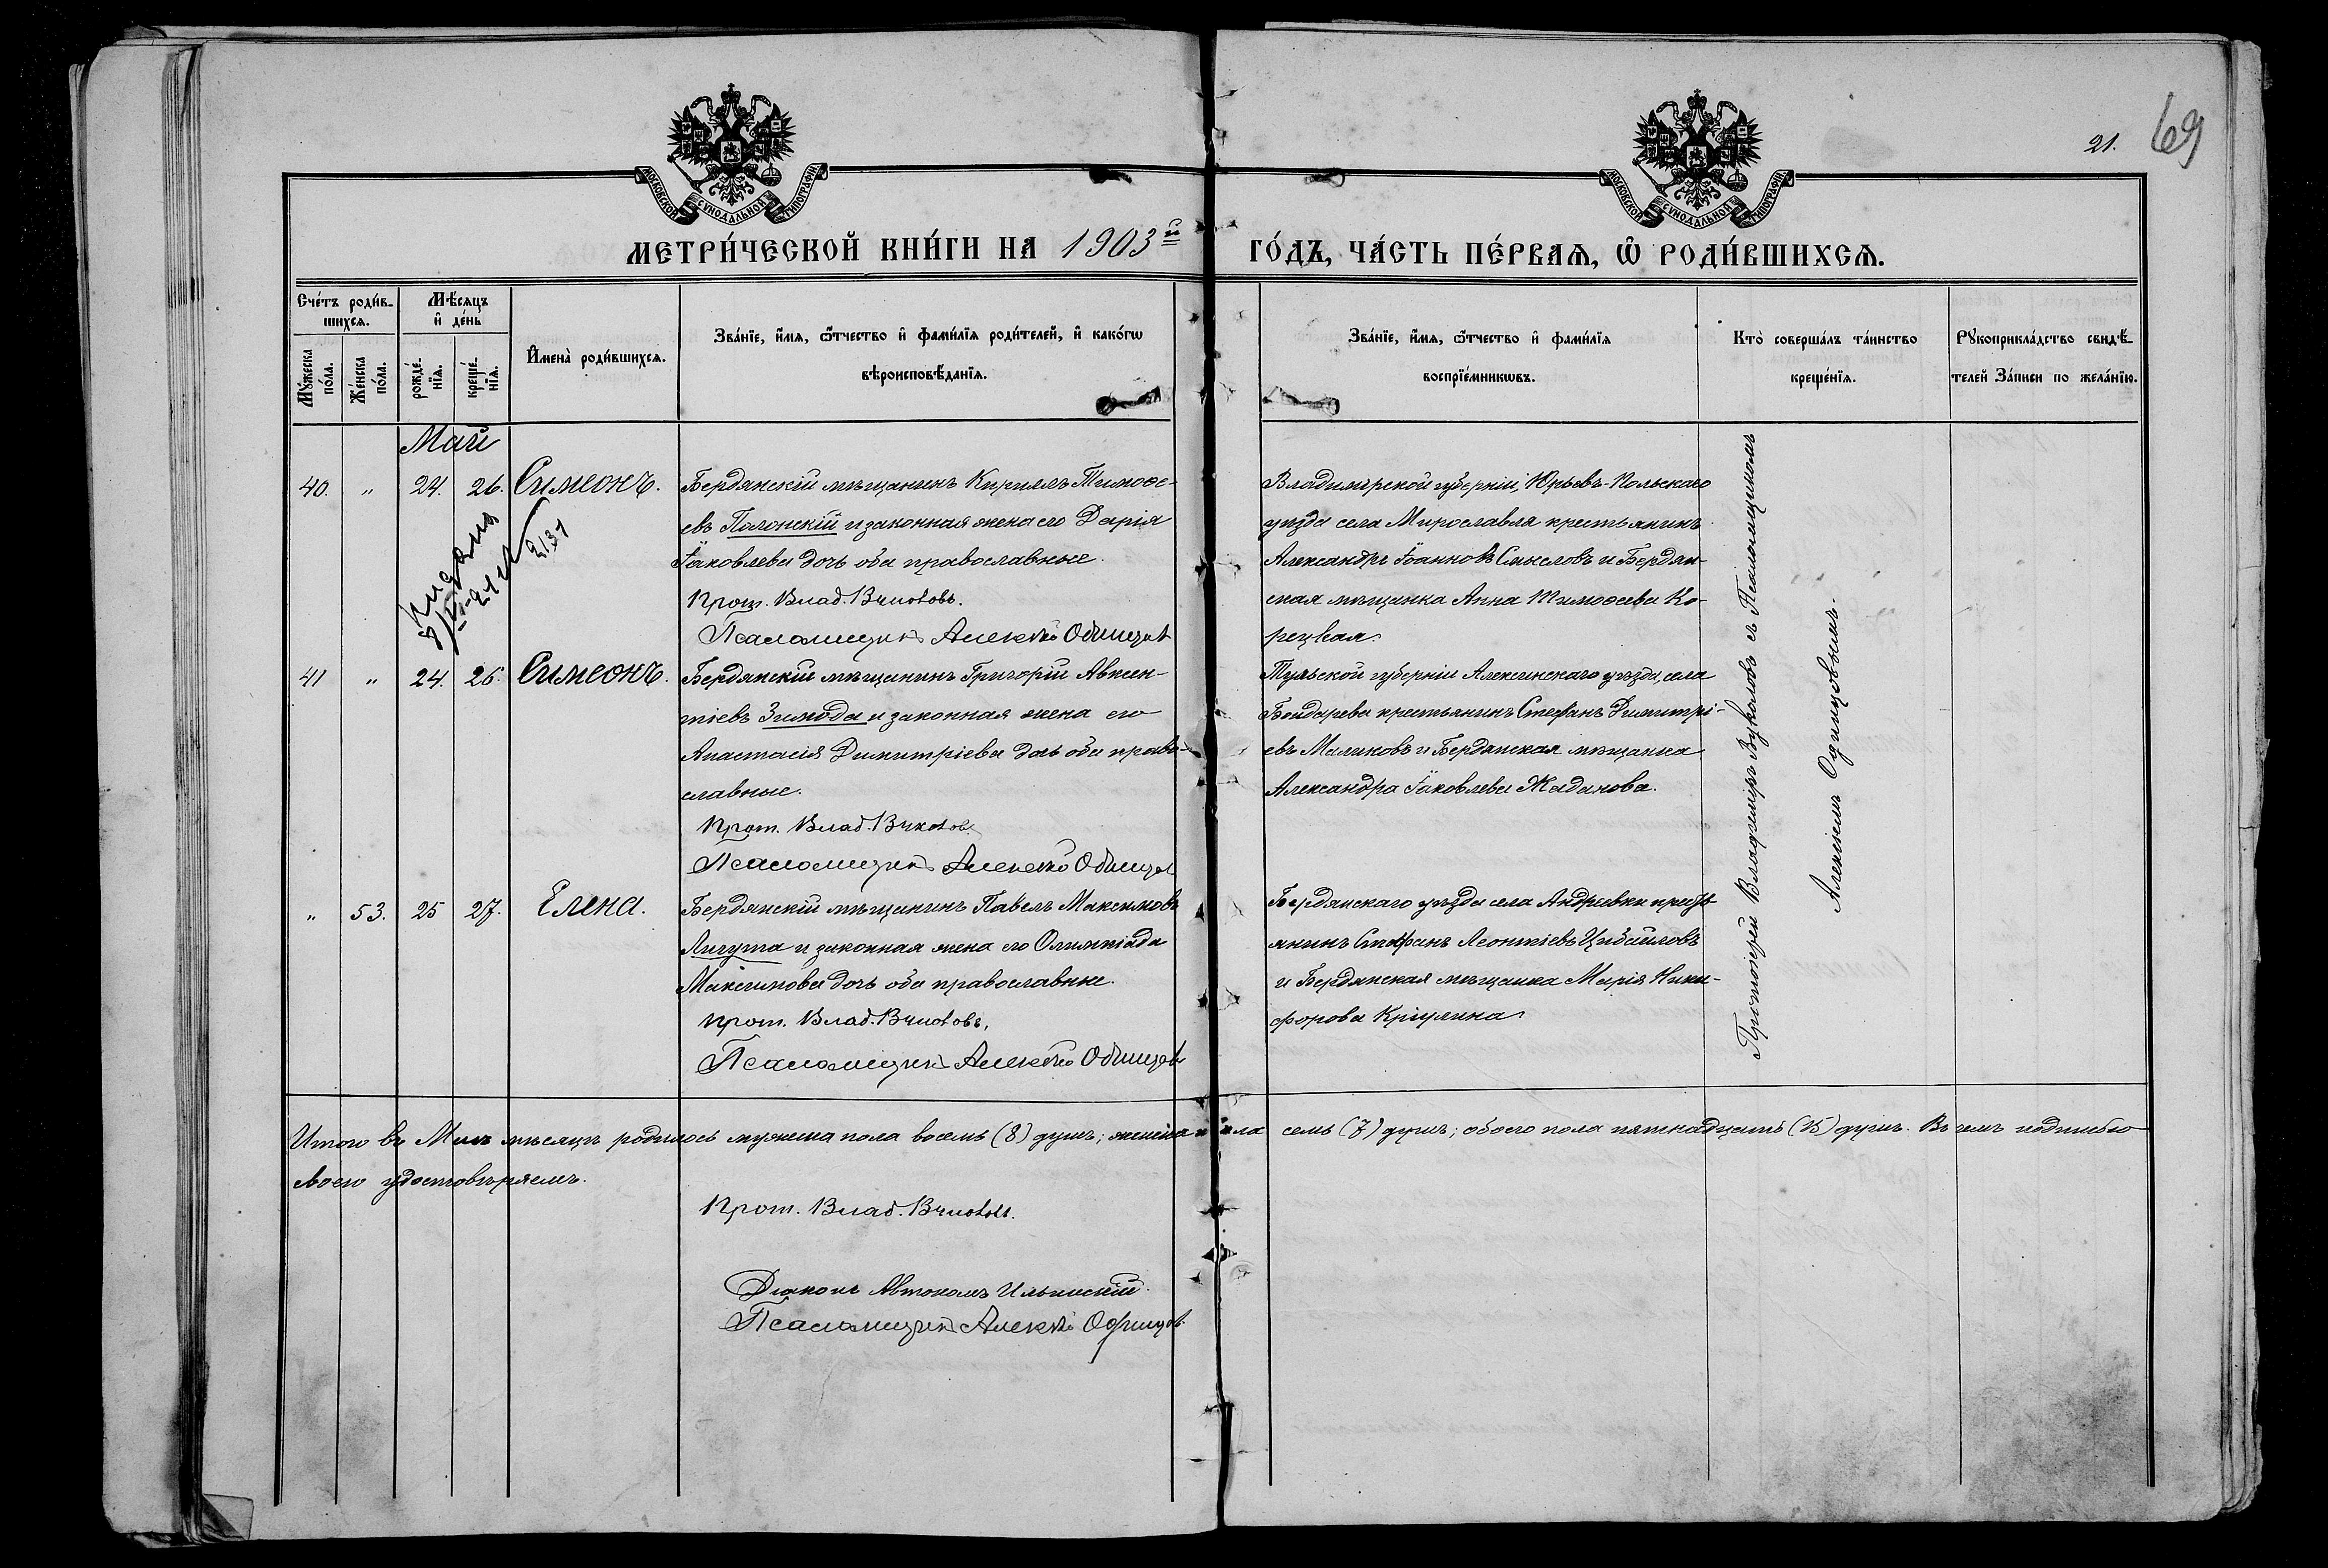 21. 69
МОСКОВСКОЙ СѴНОДАЛЬНОЙ ТИПОГРАФІИ
МОСКОВСКОЙ СѴНОДАЛЬНОЙ ТИПОГРАФІИ
МЕТРИ́ЧЕСКОЙ КНИ́ГИ НА 1903й ГО́ДЪ, ЧА́СТЬ ПЕ́РВАѦ, Ѽ РОДИ́ВШИХСѦ.
Сче́тъ роди́в-
шихсѧ.
Мꙋ́жеска
по́ла.
Же́нска
по́ла.
Мѣ́сѧцъ
и҆ де́нь
рожде́-
нїѧ.
креще́-
нїѧ.
И҆мена̀ роди́вшихсѧ.
Зва́нїе, и҆́мѧ, ѻ҆́тчество и҆ фами́лїѧ роди́телей, и҆ како́гѡ
вѣроисповѣ́данїѧ.
Зва́нїе, и҆́мѧ, ѻ҆́тчество и҆ фами́лїѧ
воспрїе́мникѡвъ.
Кто̀ соверша́лъ та́инство
креще́нїѧ.
Рꙋкоприкла́дство свидѣ́-
телей За́писи по жела́нїю.
Май
40. " 24. 26. Симеонъ.
Бердянскій мѣщанинъ Кириллъ Тимоѳе-
евъ и законная жена его Дарія
Іаковлева дочь оба православные.
Прот. Влад. Вуколовъ.
Псаломщикъ Алексѣй Одинцовъ
Владимірской губерніи, Юрьевъ-Польскаго
уѣзда села Мирославля крестьянинъ
Александръ Іоанновъ Смысловъ и Бердян-
ская мѣщанка Анна Тимоѳеева Ко-
рецкая.
2131
41 " 24. 26. Симеонъ.
Бердянскій мѣщанинъ Григорій Авксен-
тіевъ Зимода и законная жена его
Анастасія Димитріева дочь оба право-
славные.
Прот. Влад. Вуколовъ
Псаломщикъ Алексѣй Одинцов
Тульской губерніи Алексинскаго уѣзда, села
Бондарева крестьянинъ Стефанъ Димитрі-
евъ Маликовъ и Бердянская мѣщанка
Александра Іаковлева Жаданова.
" 53. 25 27. Елена.
Бердянскій мѣщанинъ Павелъ Максимовъ
Личута и законная жена его Олимпіада
Максимова дочь оба православные.
Прот. Влад. Вуколовъ,
Псаломщикъ Алексѣй Одинцовъ
Бердянскаго уѣзда села Андреевки кресть
янинъ Стефанъ Леонтіевъ Цибайловъ
и Бердянская мѣщанка Марія Ники-
форова
Протоіерей Владиміръ Вуколовъ съ Псаломщикомъ
Алексѣемъ Одинцовымъ.
Итого въ Маѣ мѣсяцѣ родилось мужеска пола восемь (8) душъ; женска пола семь (7) душъ; обоего пола пятнадцать (15) душъ. Въ чемъ подписью
своею удостовѣряемъ.
Прот. Влад. Вуколовъ.
Діаконъ Автономъ Ильинскій.
Псаломщикъ Алексѣй Одинцов.